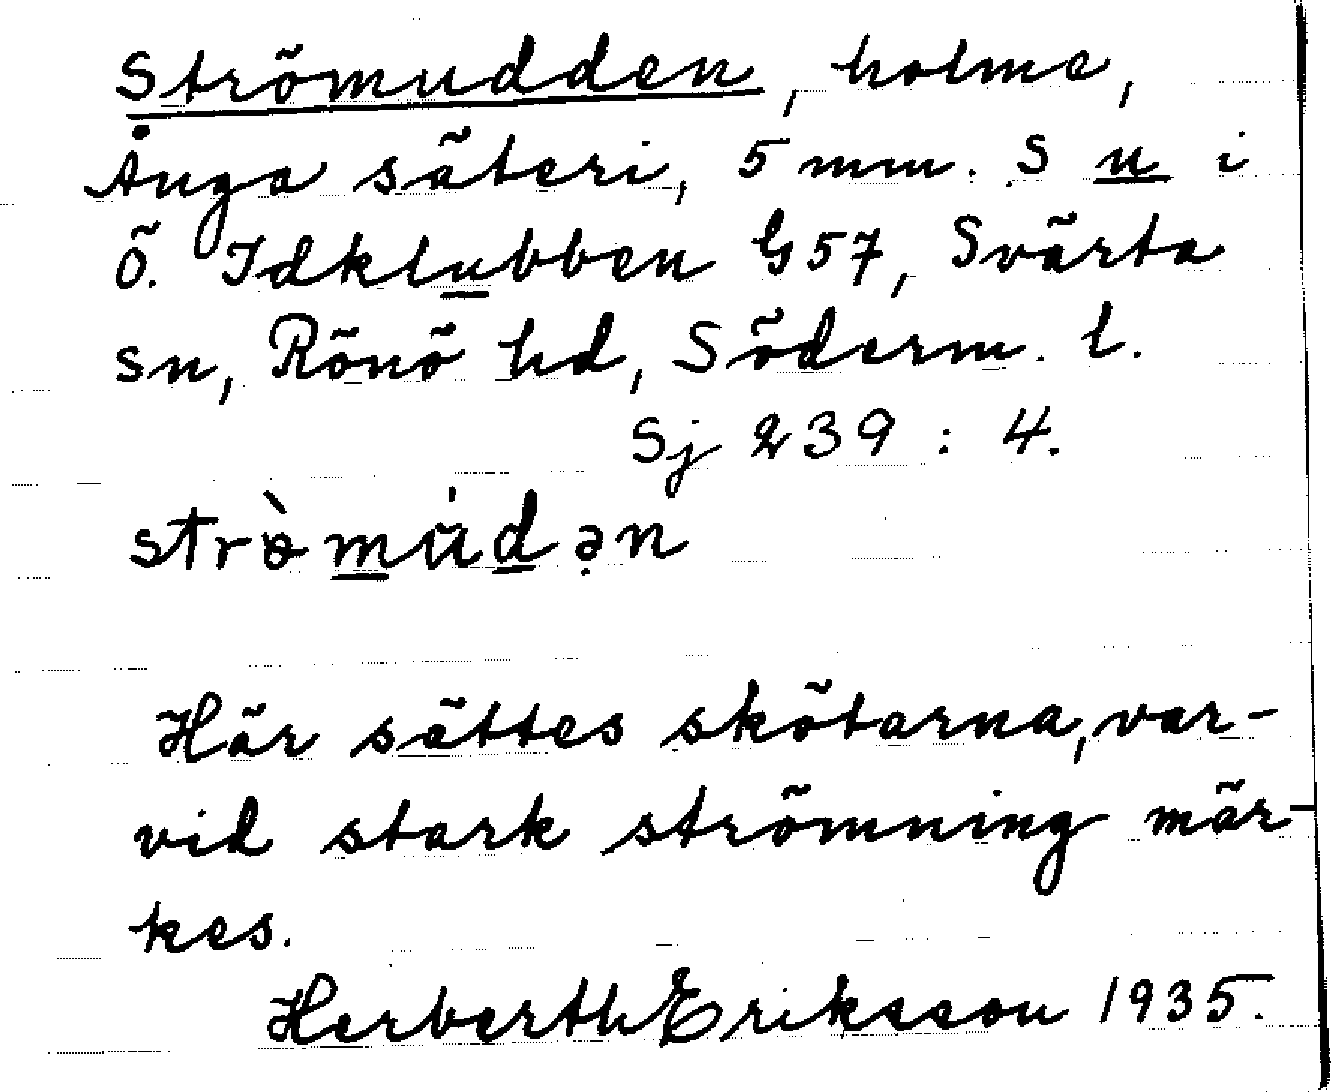 Strömudden, holme,
Ånga säteri, 5 mm. S u i
Ö. Idklubben G57, Svärta
sn, Rönö hd, Söderm. l.
Sj 239 : 4.
strø̀mùdən
Här sättes skötarna, var-
vid stark strömning mär-
kes.
Herberth Eriksson 1935.